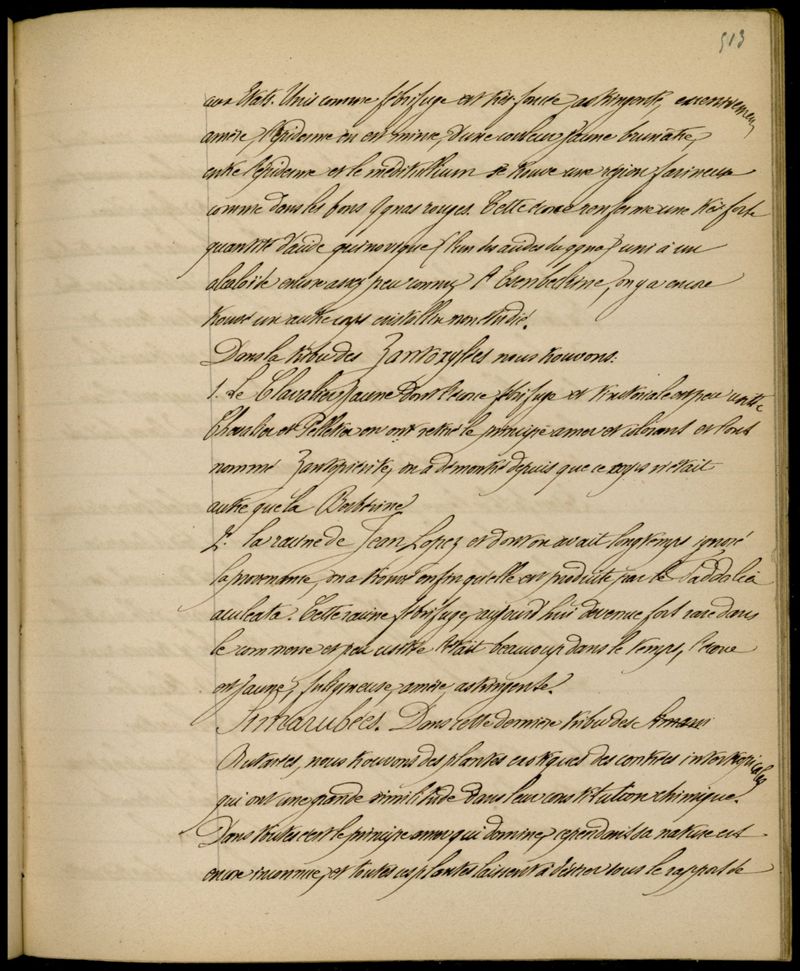 513
aux Etats-Unis comme fébrifuge est très foncée, astringente, excessivement
amère, l'épiderme en est mince, d'une couleur jaune brunâtre,
entre l'épiderme et le meditullium se trouve une région farineuse
comme dans les bons qqnas rouges. Cette écorce renferme une très forte
quantité d'acide quinovique (l'un des acides du qqna) uni à un
alcaloïde encore assez peu connu, l'Esenbeckine, on y a encore
trouvé un autre corps cristallin non étudié.
Dans la tribu des Zantoxylées nous trouvons:
1. Le Clavalier jaune dont l'écorce fébrifuge et tinctoriale est peu usitée
Chevalier et Pelletier en ont retiré le principe amer et colorant et l'ont
nommé Zantopicrite, on a démontré depuis que ce corps n'était
autre que la Berbérine
2. la racine de Jean Lopez et dont on avait longtemps ignoré
la provenance, on a trouvé enfin qu'elle est produite par le Taddalia
aculeata. Cette racine fébrifuge, aujourd'hui devenue fort rare dans
le commerce et peu usitée l'était beaucoup dans le temps, l'écorce
est jaune, fuligineuse, amère astringente.
Simarubées. Dans cette dernière tribu des
Rutacées, nous trouvons des plantes exotiques des contrées intertropicales
qui ont une grande similitude dans leur constitution chimique.
Dans toutes c'est le principe amer qui domine, cependant sa nature est
encore inconnue, et toutes ces plantes laissent à désirer sous le rapport de